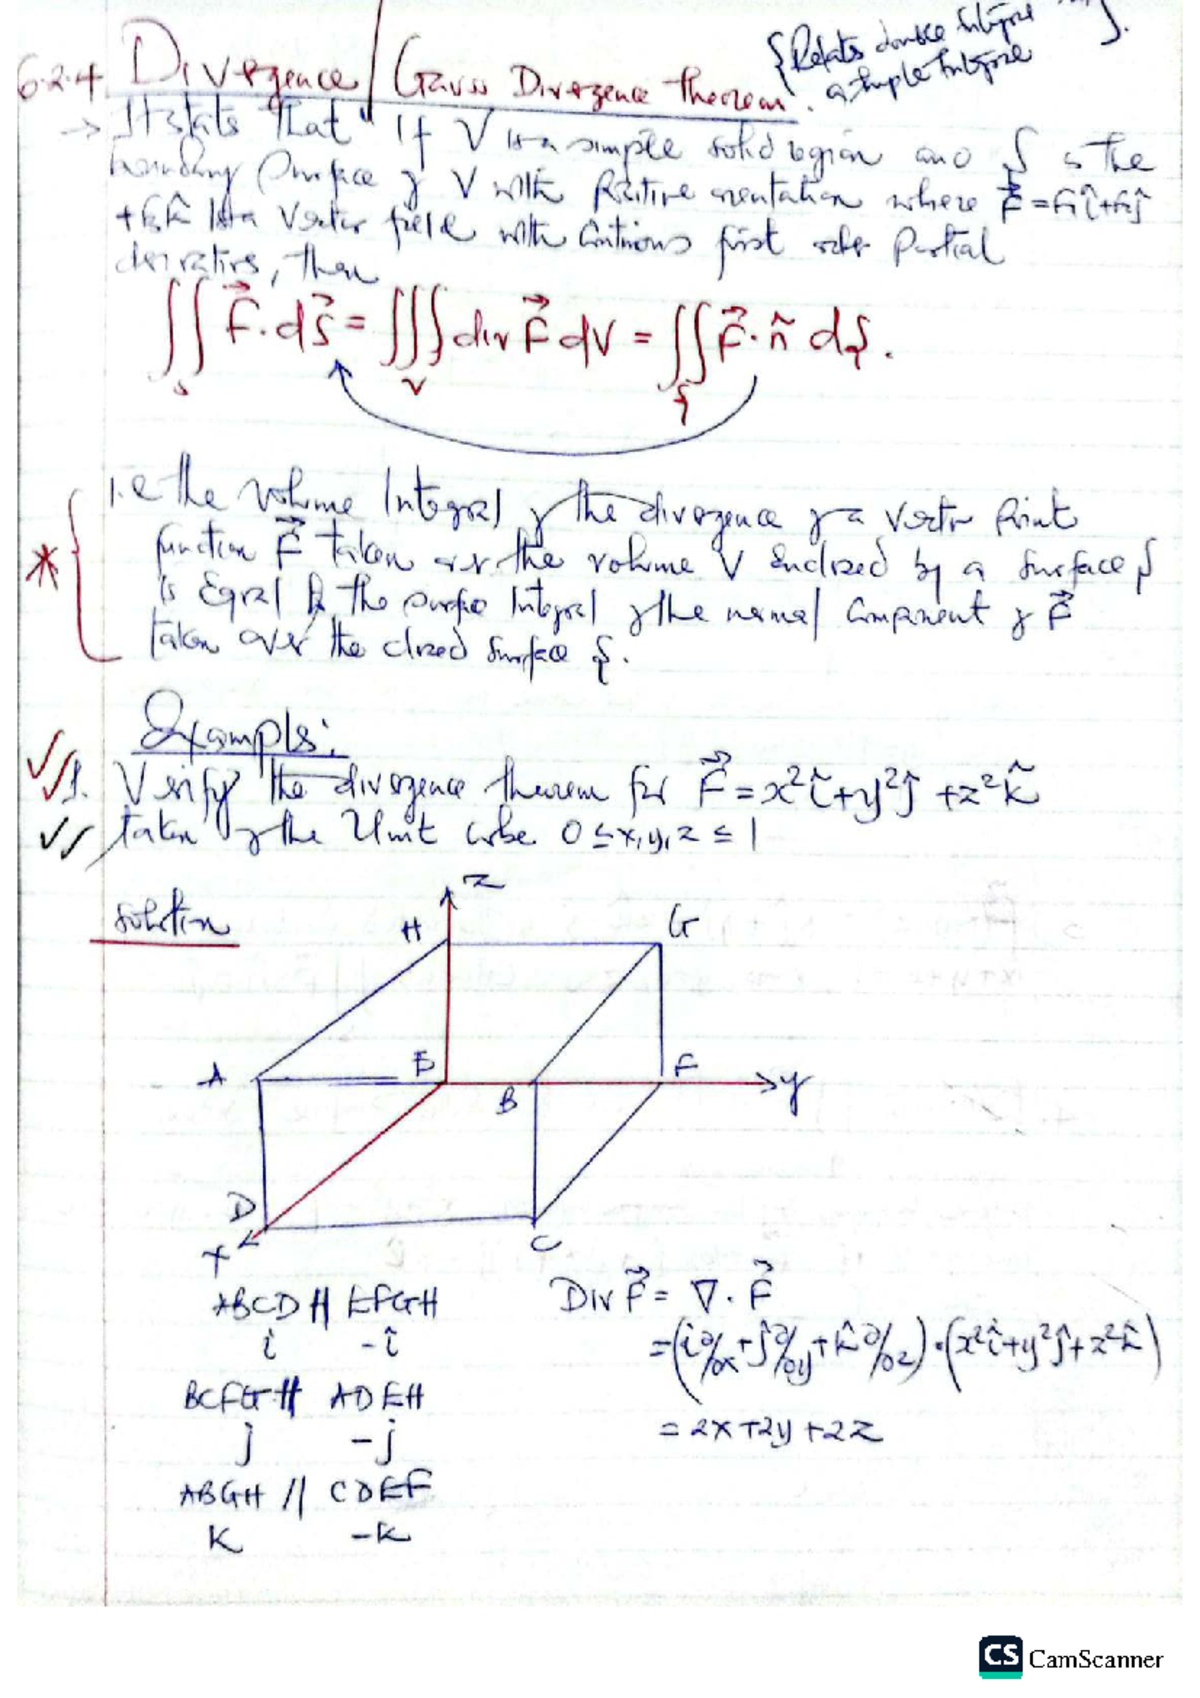 6.2.4 Divergence / Gauss Divergence theorem. {Relates double Integral
a triple Integral }.
→ It states that "If V is a simple solid region and S is the
boundary surface of V with Positive orientation where F⃗ = f₁î+f₂ĵ
+f₃k̂ is a vector field with Continous first order Partial
derivativs, then
∬ₛ F⃗·dS⃗ = ∭ᵥ div F⃗ dV = ∬ₛ F⃗·ñ dS.
* { i.e the volume Integral of the divergence of a vector Point
function F⃗ taken over the volume V enclosed by a surface S
is Equal to the surface Integral of the normal Component of F⃗
taken over the closed surface S.
Example:
1. Verify the divergence theorem for F⃗ = x²ĩ+y²j̃ +z²k̃
taken of the Unit cube 0 ≤ x,y,z ≤ 1
solution
z
H G
A E B F y
D C
x
ABCD // EFGH
î -î
BCFG // ADEH
j -j
ABGH // CDEF
K -k
Div F⃗ = ∇·F⃗
=(î∂/∂x+ĵ∂/∂y+k̂∂/∂z)·(x²î+y²ĵ+z²k̂)
= 2x+2y+2z
CS CamScanner